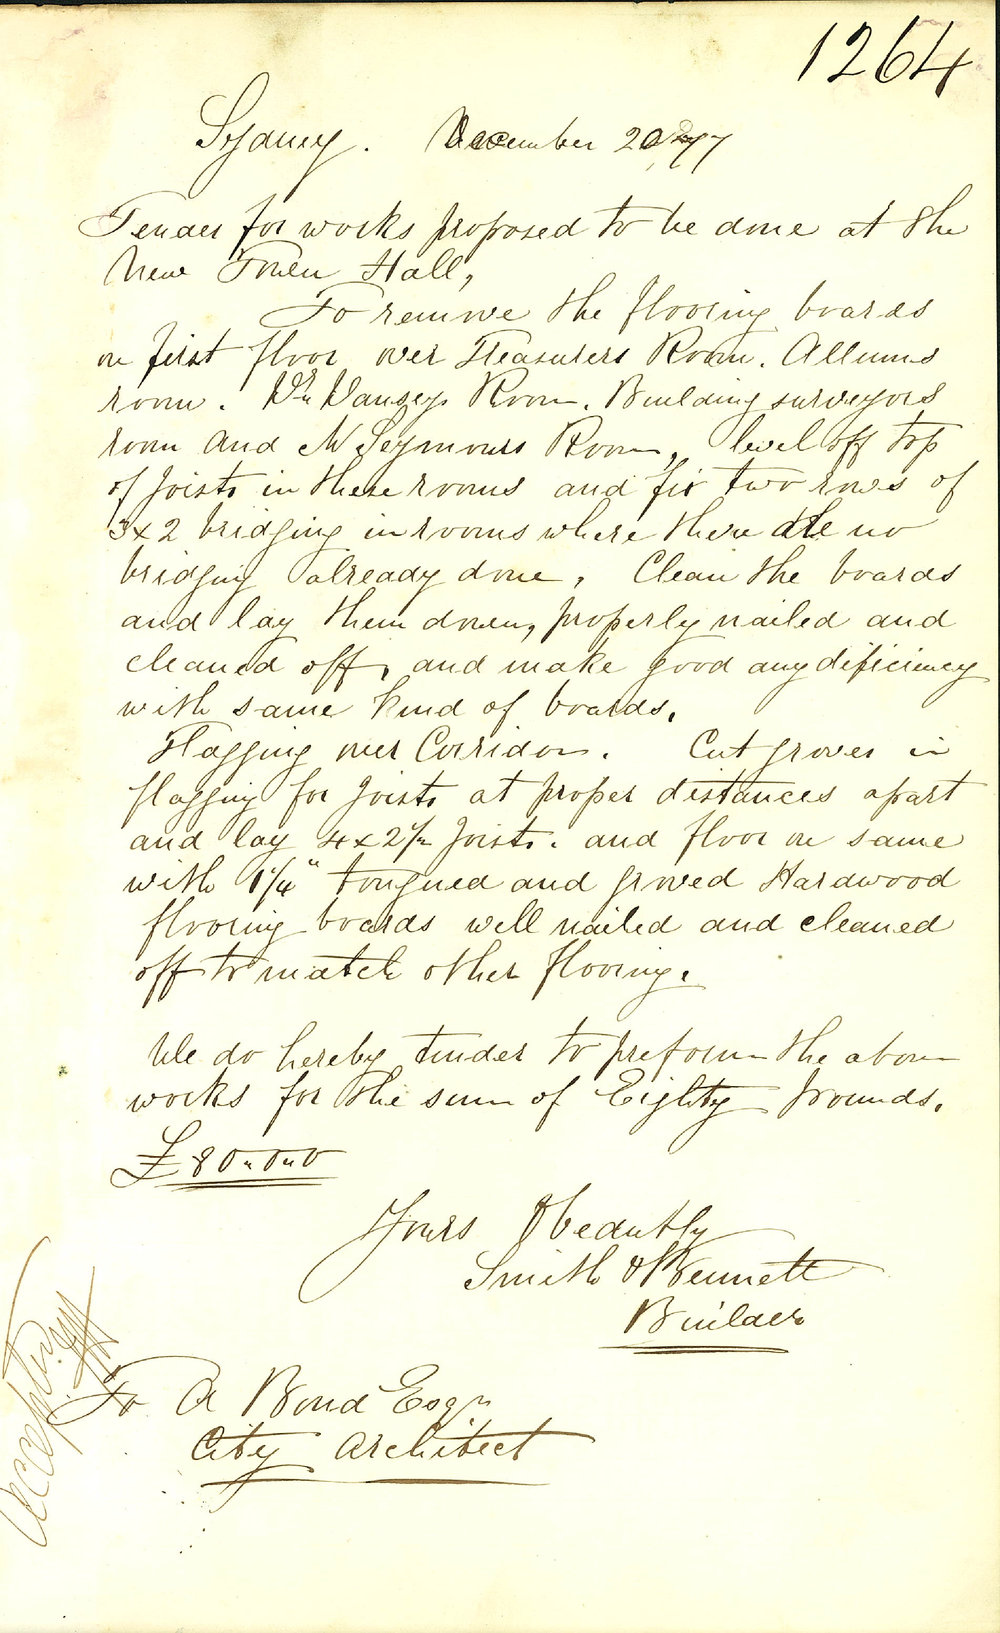 1264
Sydney. December 20 77
Tender for works proposed to be done at the
New Town Hall,
To remove the flooring boards
on first floor over Treasurers Room. Allums
room. Dr Dansey's Room. Building surveyors
room and Mr Seymours Room, level off top
of joists in these rooms and fix two rows of
3x2 bridging in rooms where there are no
bridging already done, Clean the boards
and lay them down, properly nailed and
cleaned off, and make good any dificiency
with same kind of boards.
Flagging over Corridor. Cut groves in
flagging for joists at proper distances apart
and lay 4x2½ joists. and floor on same
with 1¼" tongued and groved Hardwood
flooring boards well nailed and cleaned
off to match other flooring.
We do hereby tender to preform the above
works for the sum of Eighty pounds.
£80-0-0
Yours Obeantly
Smith & Bennett
Builders
To A Bond Esqr
City Architect